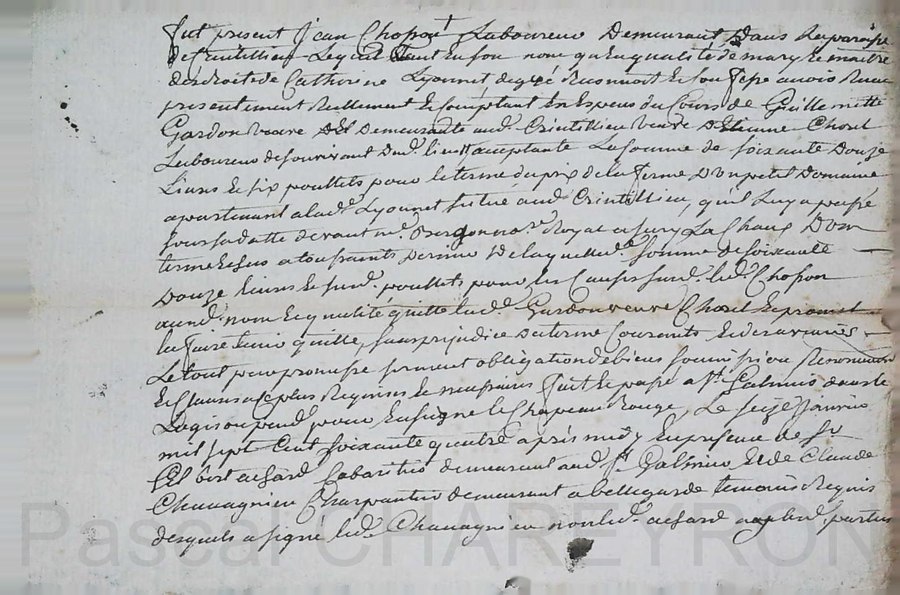 fut présent Jean Chopon Laboureur Demeurant Dans la paroise
de Crintillieu Lequel tant En son nom qu'en qualité de mary Et maitre
des droits de Catherine Lyonnet de gré Reconnoit Et Confesse avoir Receu
presentement Reellement Et Comptant En Espece du Cours de Guillemette
Gardon veuve D'El Demeurante aud. Crintillieu veuve D'Etienne Chorel
Laboureur de son vivant dud. lieu acceptante La somme de soixante Douze
Livres Et six poullets pour le terme du prix de la ferme D'un petit Domaine
apartenant a lad. Lyonnet situé aud Crintillieu, qu'il Luy a passé
sous sa datte devant Me. no.re Royal a Sury La Chaux Dom
terme Echus a toussaints Dernier De laquelle. somme de soixante
Douze livres Et susd. poullets pour les Causes susd. led. Chopon
aux d. nom Et qualité quitte lad. Gardon veuve Chorel Et promet
la faire tenir quitte, sans prejudice du terme Courants Et des avenirs
Le tout par promesse serment obligation de biens soumission Renonciation
Et Clauses a ce plus Requises Et necessaires fait Et passé a St. Galmier dans le
Logis ou pend pour Enseigne le Chapeau Rouge, Le seize Janvier
mil sept Cent soixante quatre après midy En presence de Sr
Cabaretier demeurant aud St. Galmier Et de Claude
Chavagnieu Charpantier demeurant a bellegarde temoins Requis
desquels a signé led. Chavagnieu non led. ny lesd. parties
Pascal CHAREYRON